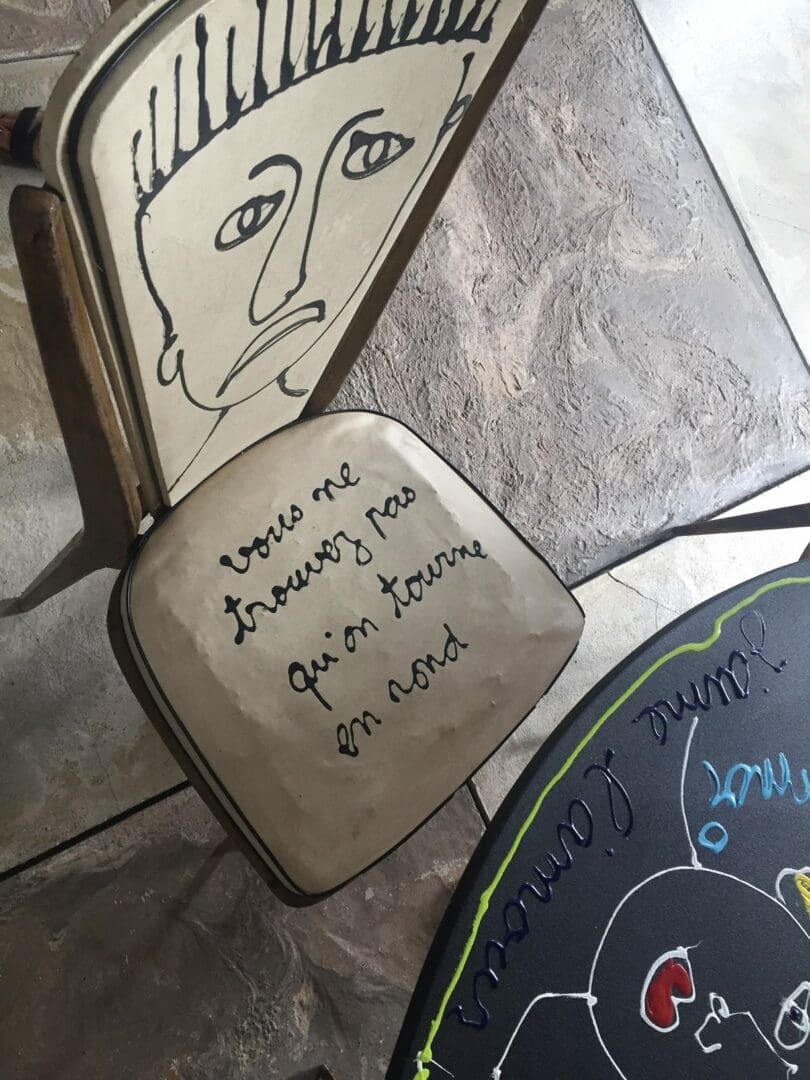 vous ne
trouvez pas
qu'on tourne
en rond
J'aime l'amour